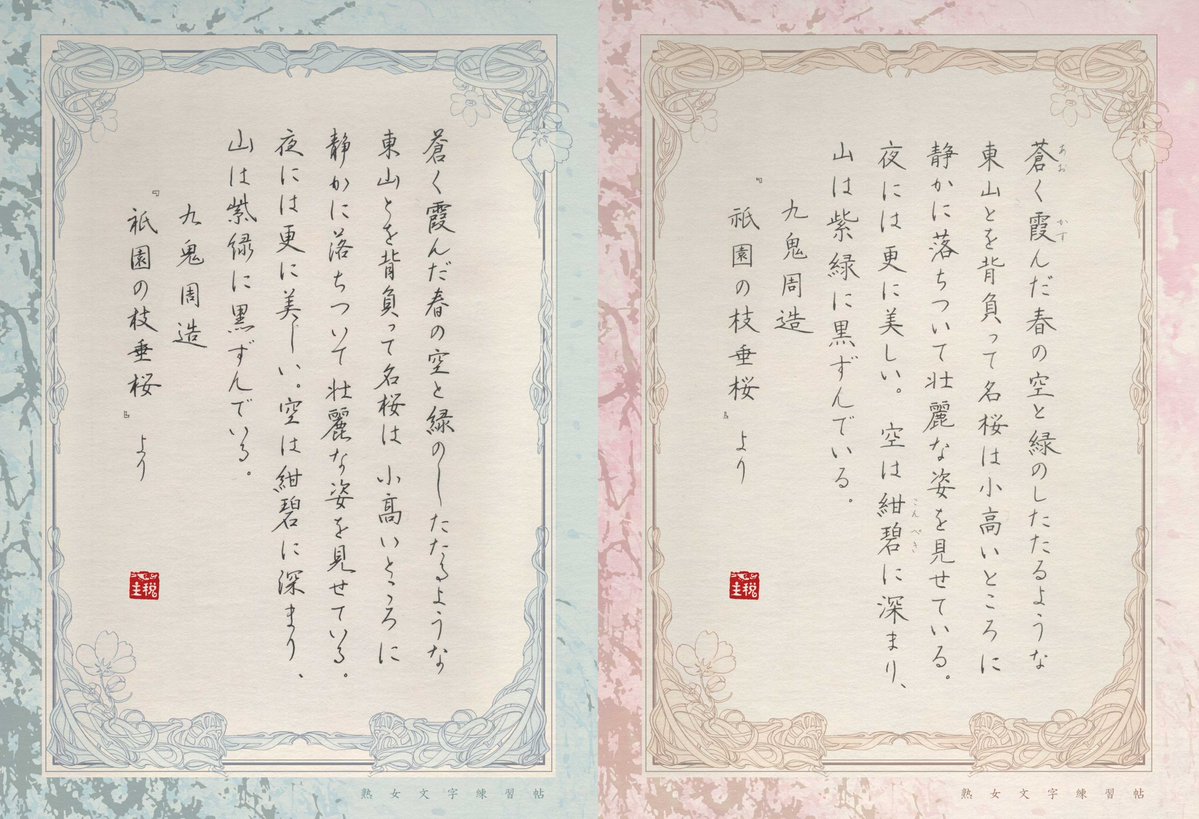 蒼く霞んだ春の空と緑のしたたるような
東山とを背負って名桜は小高いところに
静かに落ちついて壮麗な姿を見せている。
夜には更に美しい。空は紺碧に深まり、
山は紫緑に黒ずんでいる。
九鬼周造
『祇園の枝垂桜』より
主税
熟女文字練習帖
あお かす
蒼く霞んだ春の空と緑のしたたるような
東山とを背負って名桜は小高いところに
静かに落ちついて壮麗な姿を見せている。
こんぺき
夜には更に美しい。空は紺碧に深まり、
山は紫緑に黒ずんでいる。
九鬼周造
『祇園の枝垂桜』より
主税
熟女文字練習帖